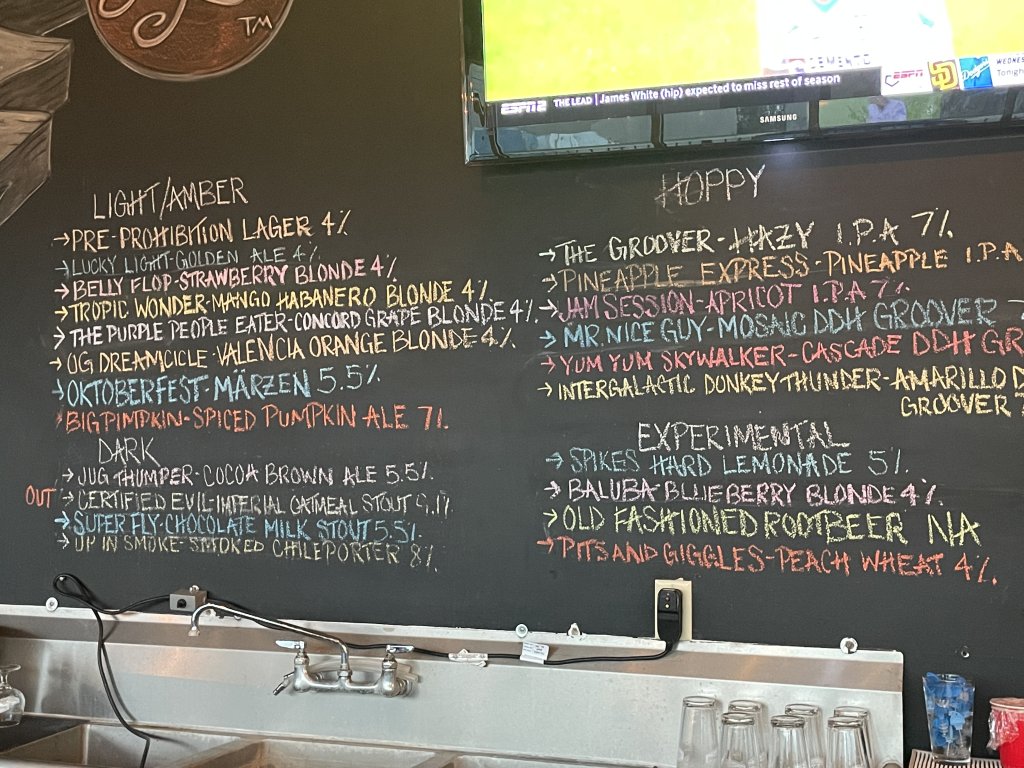 TM
ESPN2 THE LEAD | James White (hip) expected to miss rest of season
ESPN SD Dodgers WEDNES
Tonigh
SAMSUNG
LIGHT/AMBER
→PRE-PROHIBITION LAGER 4%
→LUCKY LIGHT-GOLDEN ALE 4%
→BELLY FLOP-STRAWBERRY BLONDE 4%
→TROPIC WONDER-MANGO HABANERO BLONDE 4%
→THE PURPLE PEOPLE EATER-CONCORD GRAPE BLONDE 4%
→OG DREAMCICLE-VALENCIA ORANGE BLONDE 4%
→OKTOBERFEST-MÄRZEN 5.5%
→BIG PIMPKIN-SPICED PUMPKIN ALE 7%
DARK
→JUG THUMPER-COCOA BROWN ALE 5.5%
OUT →CERTIFIED EVIL-IMPERIAL OATMEAL STOUT 9.1%
→SUPER FLY-CHOCOLATE MILK STOUT 5.5%
→UP IN SMOKE-SMOKED CHILE PORTER 8%
HOPPY
→THE GROOVER-HAZY I.P.A 7%
→PINEAPPLE EXPRESS-PINEAPPLE I.P.A
→JAM SESSION-APRICOT I.P.A 7%
→MR. NICE GUY-MOSAIC DDH GROOVER 7
→YUM YUM SKYWALKER-CASCADE DDH GR
→INTERGALACTIC DONKEY THUNDER-AMARILLO D
GROOVER 7
EXPERIMENTAL
→SPIKES HARD LEMONADE 5%
→BALUBA-BLUEBERRY BLONDE 4%
→OLD FASHIONED ROOTBEER NA
→PITS AND GIGGLES-PEACH WHEAT 4%